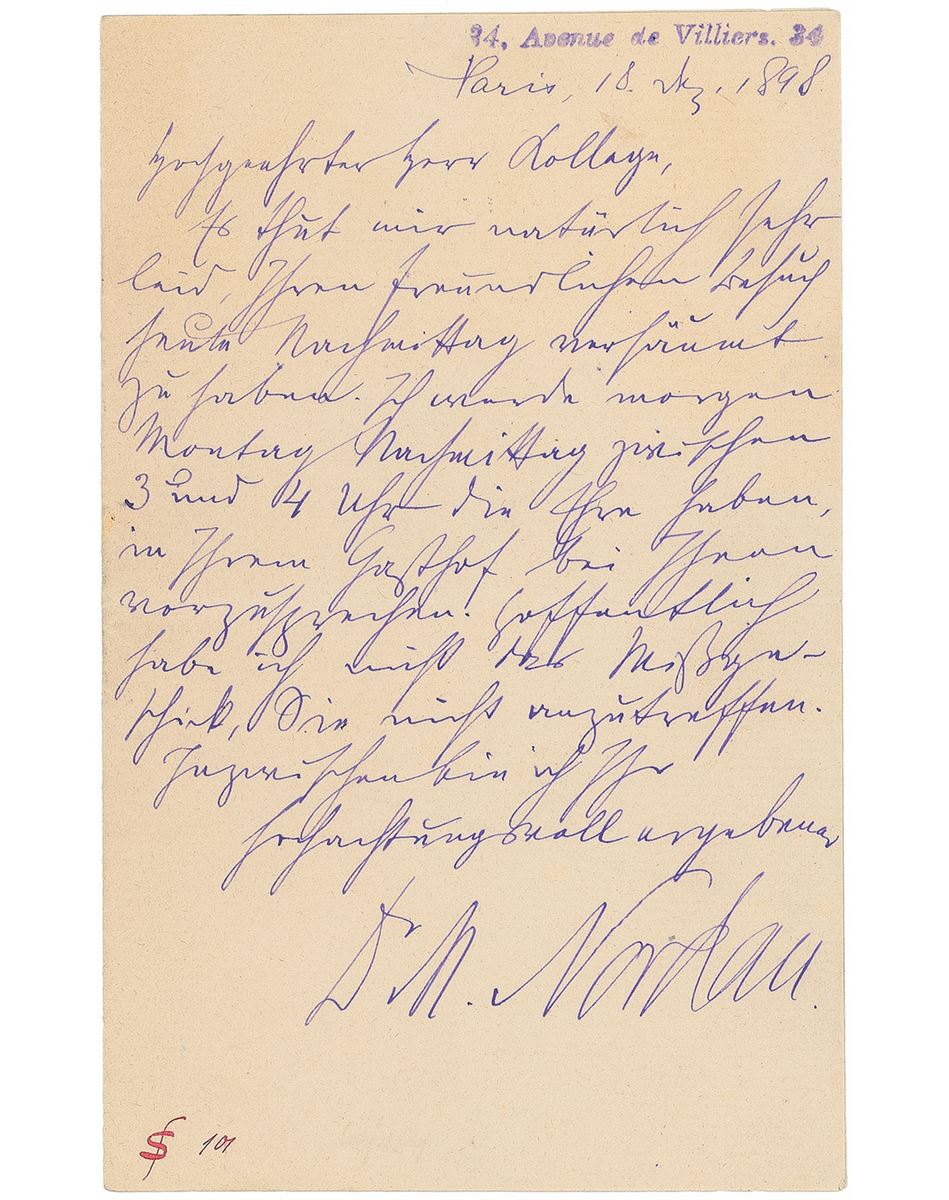 34, Avenue de Villiers. 34
Paris, 18. Dez. 1898.
Hochgeehrter Herr Kollege,
Es thut mir natürlich sehr
leid, Ihren freundlichen Besuch
heute Nachmittag versäumt
zu haben. Ich werde morgen
Montag Nachmittag zwischen
3 und 4 Uhr die Ehre haben,
in Ihrem Gasthof bei Ihnen
vorzusprechen. Hoffentlich
habe ich nicht das Mißge-
schick, Sie nicht anzutreffen.
Inzwischen bin ich Ihr
hochachtungsvoll ergebener
Dr. M. Nordau.
101